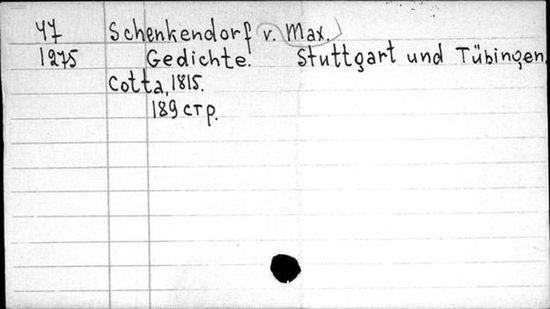 47 Schenkendorf v. Max.
1275 Gedichte. Stuttgart und Tübingen,
Cotta, 1815.
189 стр.